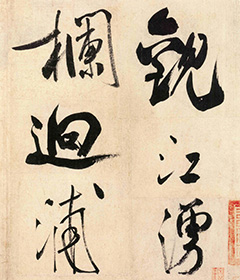 觀江湧
欄迴浦